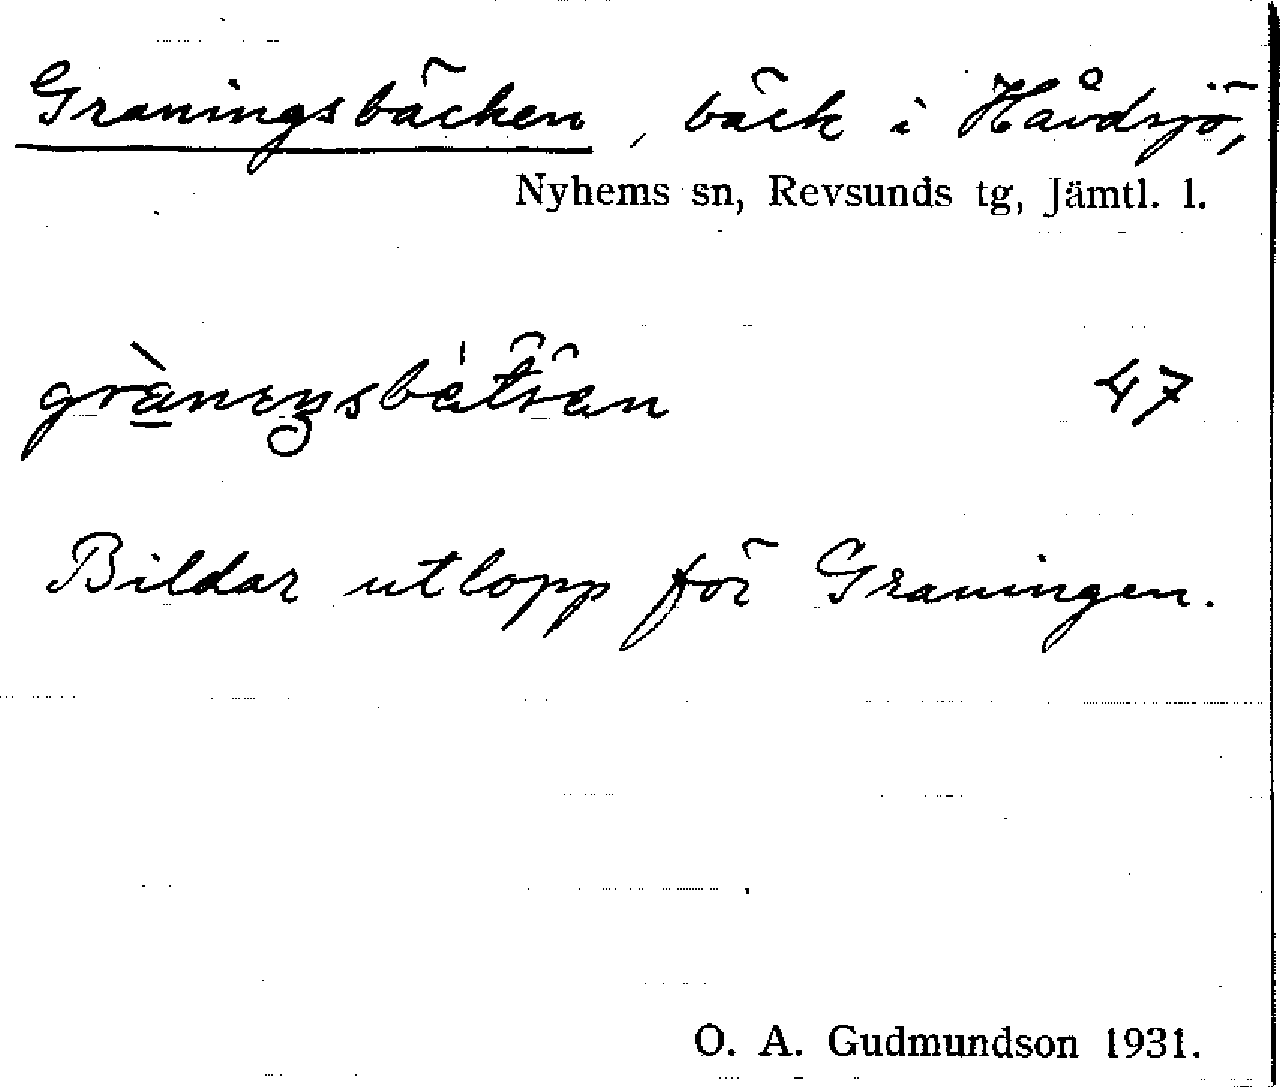 Graningsbäcken, bäck i Håvdsjö,
Nyhems sn, Revsunds tg, Jämtl. l.
47
Bildar utlopp för Graningen.
O. A. Gudmundson 1931.